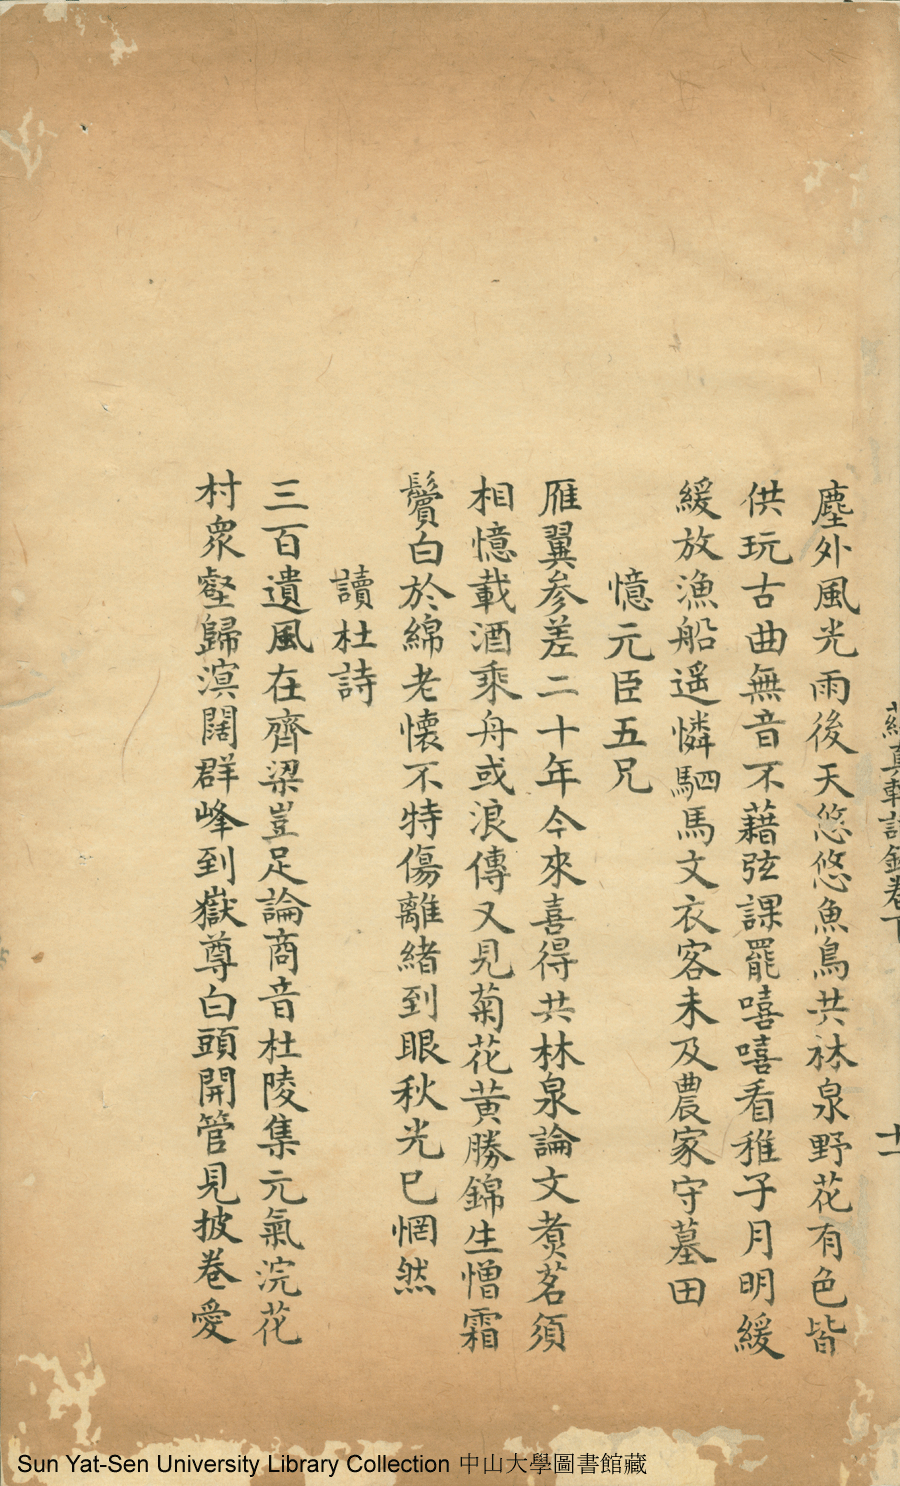 塵外風光雨後天悠悠魚鳥共林泉野花有色皆
供玩古曲無音不藉弦課罷嘻嘻看稚子月明緩
緩放漁船遥憐駟馬文衣客未及農家守墓田
憶元臣五兄
雁翼参差二十年今來喜得共林泉論文煑茗須
相憶載酒乘舟或浪傳又見菊花黄勝錦生憎霜
鬢白於綿老懷不特傷離緒到眼秋光已惘然
讀杜詩
三百遺風在齊梁豈足論商音杜陵集元氣浣花
村衆壑歸溟闊群峰到嶽尊白頭開管見披卷愛
真軒詩鈔卷下
十一
Sun Yat-Sen University Library Collection 中山大學圖書館藏